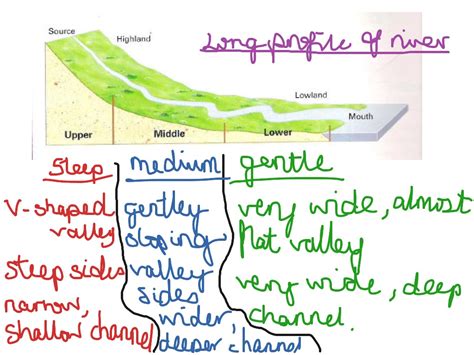 Long profile of river
Source
Highland
Lowland
Mouth
Upper
Middle
Lower
Steep
V-shaped
valley
steep sides
narrow,
shallow channel
medium
gentley
sloping
valley
sides
wider,
deeper channel
gentle
very wide, almost
flat valley
very wide, deep
channel.